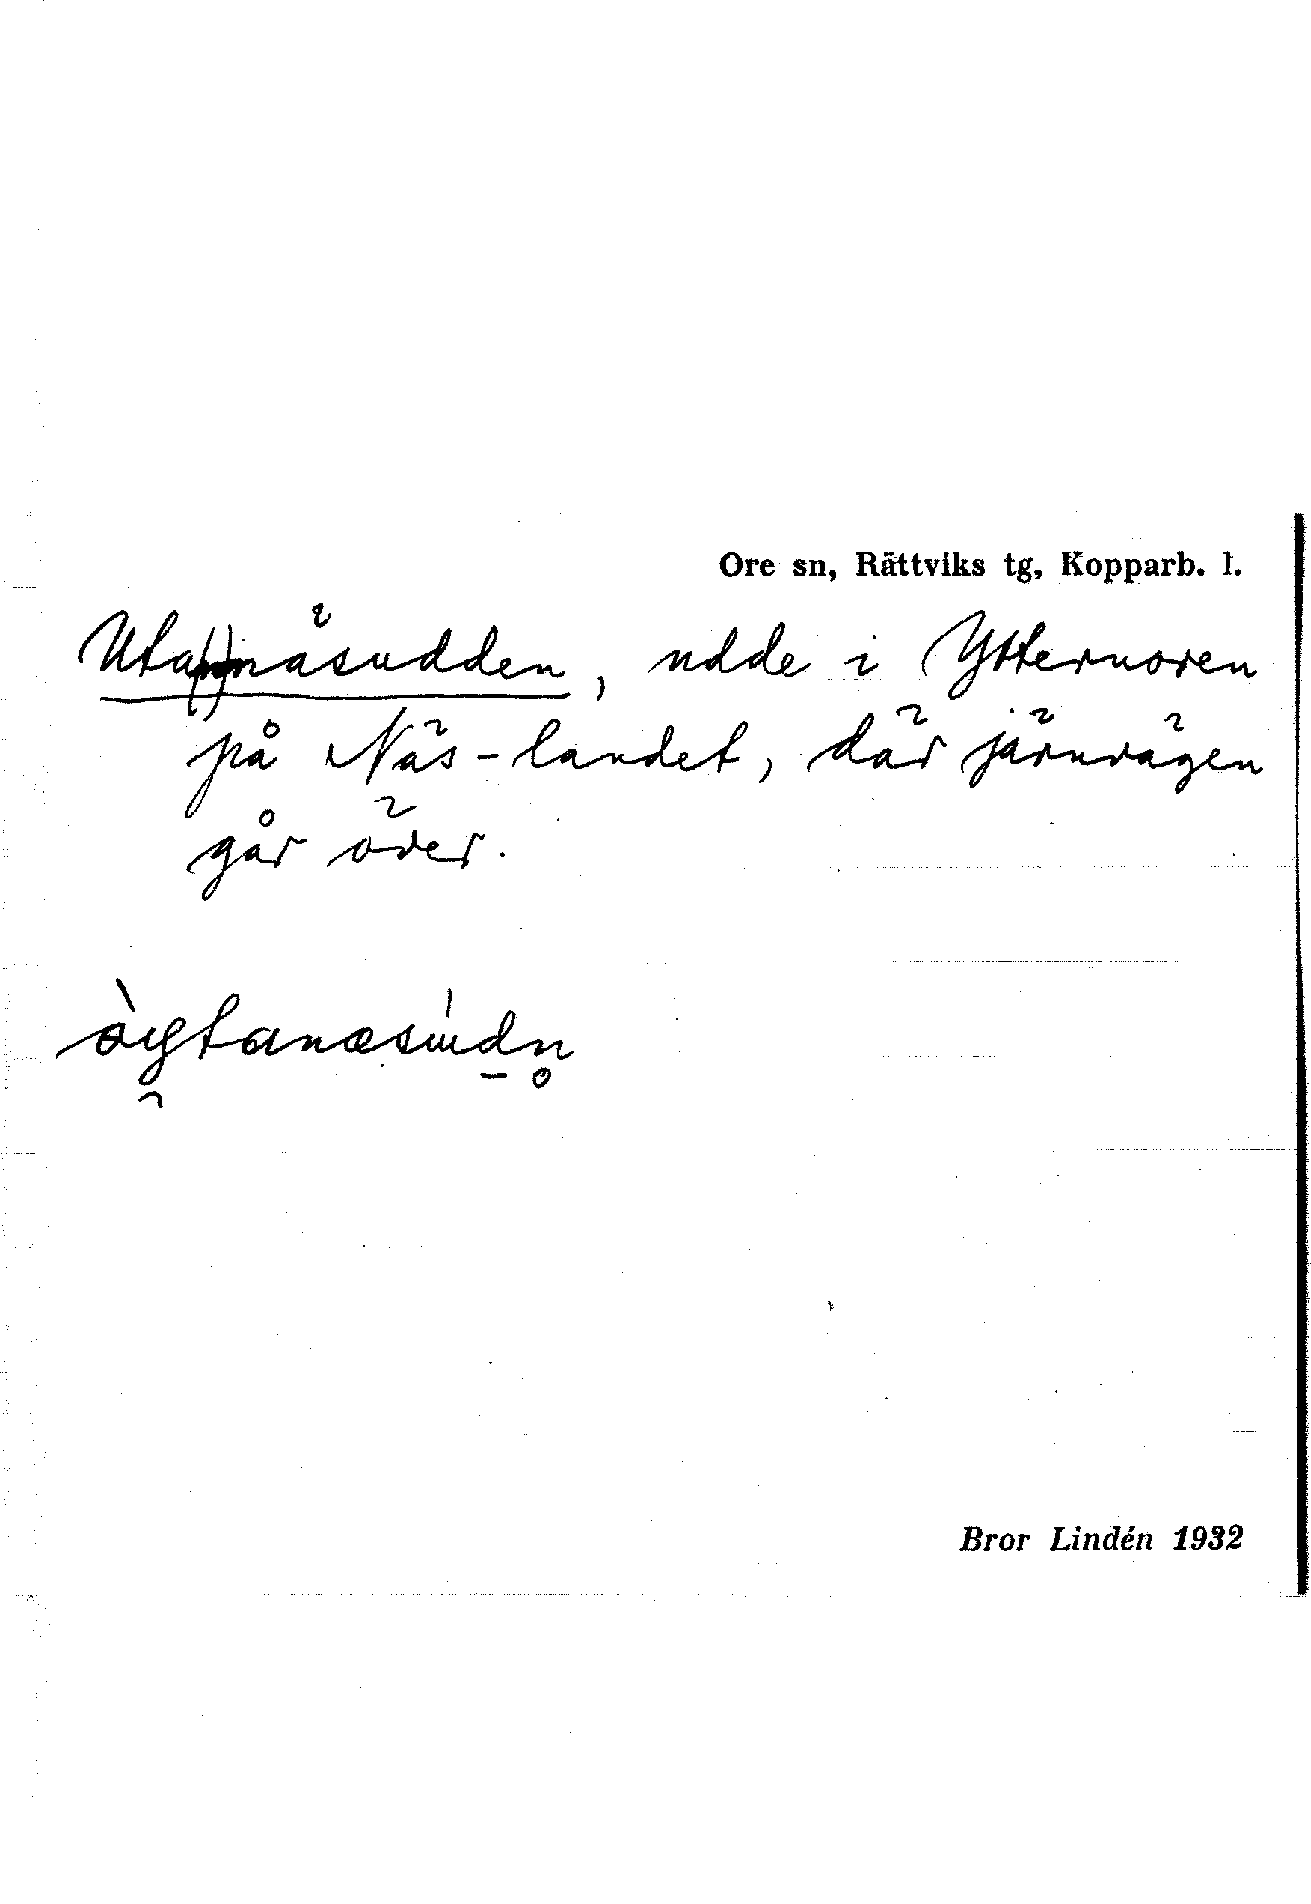 Ore sn, Rättviks tg, Kopparb. l.
Uta(n)näsudden, udde i Ytternoren
på Näs-landet, där järnvägen
går över.
Bror Lindén 1932